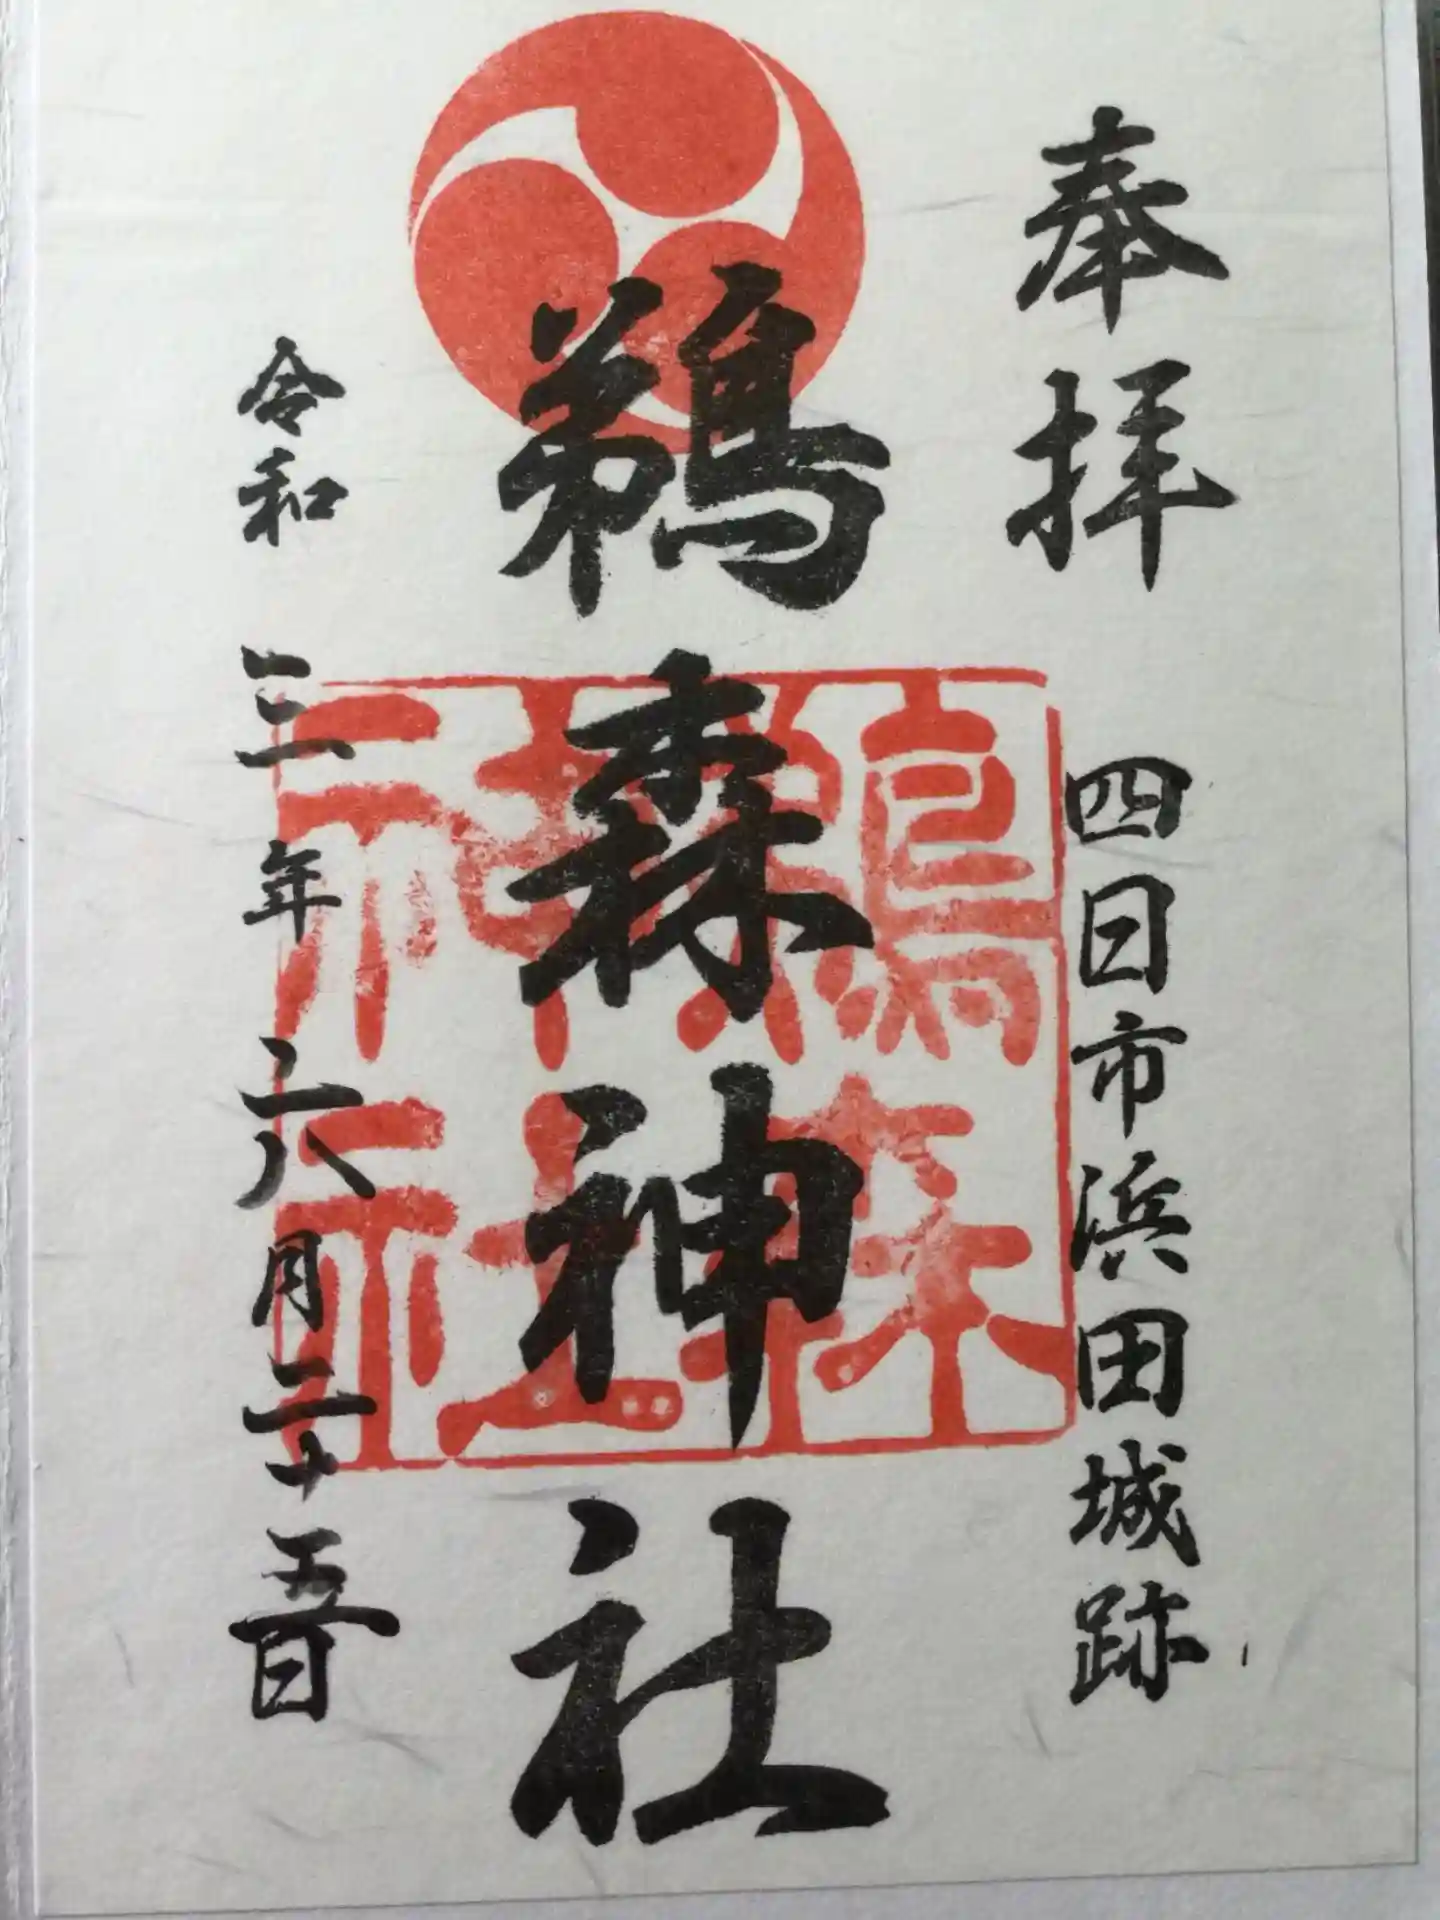 奉拝
四日市浜田城跡
鵜森神社
鵜森
神社
令和三年六月二十五日